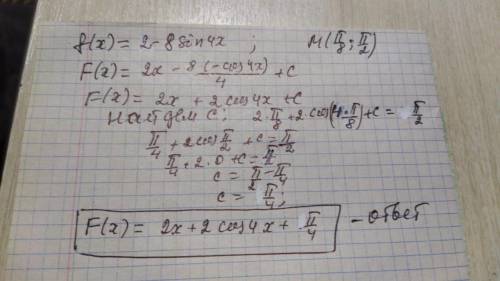 f(x) = 2 - 8 sin 4x ; M(π/8; π/2)
F(x) = 2x - 8(-cos 4x)/4 + C
F(x) = 2x + 2 cos 4x + C
Найдем C: 2·π/8 + 2·cos(4·π/8) + C = π/2
π/4 + 2 cos π/2 + C = π/2
π/4 + 2·0 + C = π/2
C = π/2 - π/4
C = π/4;
F(x) = 2x + 2 cos 4x + π/4 - ответ